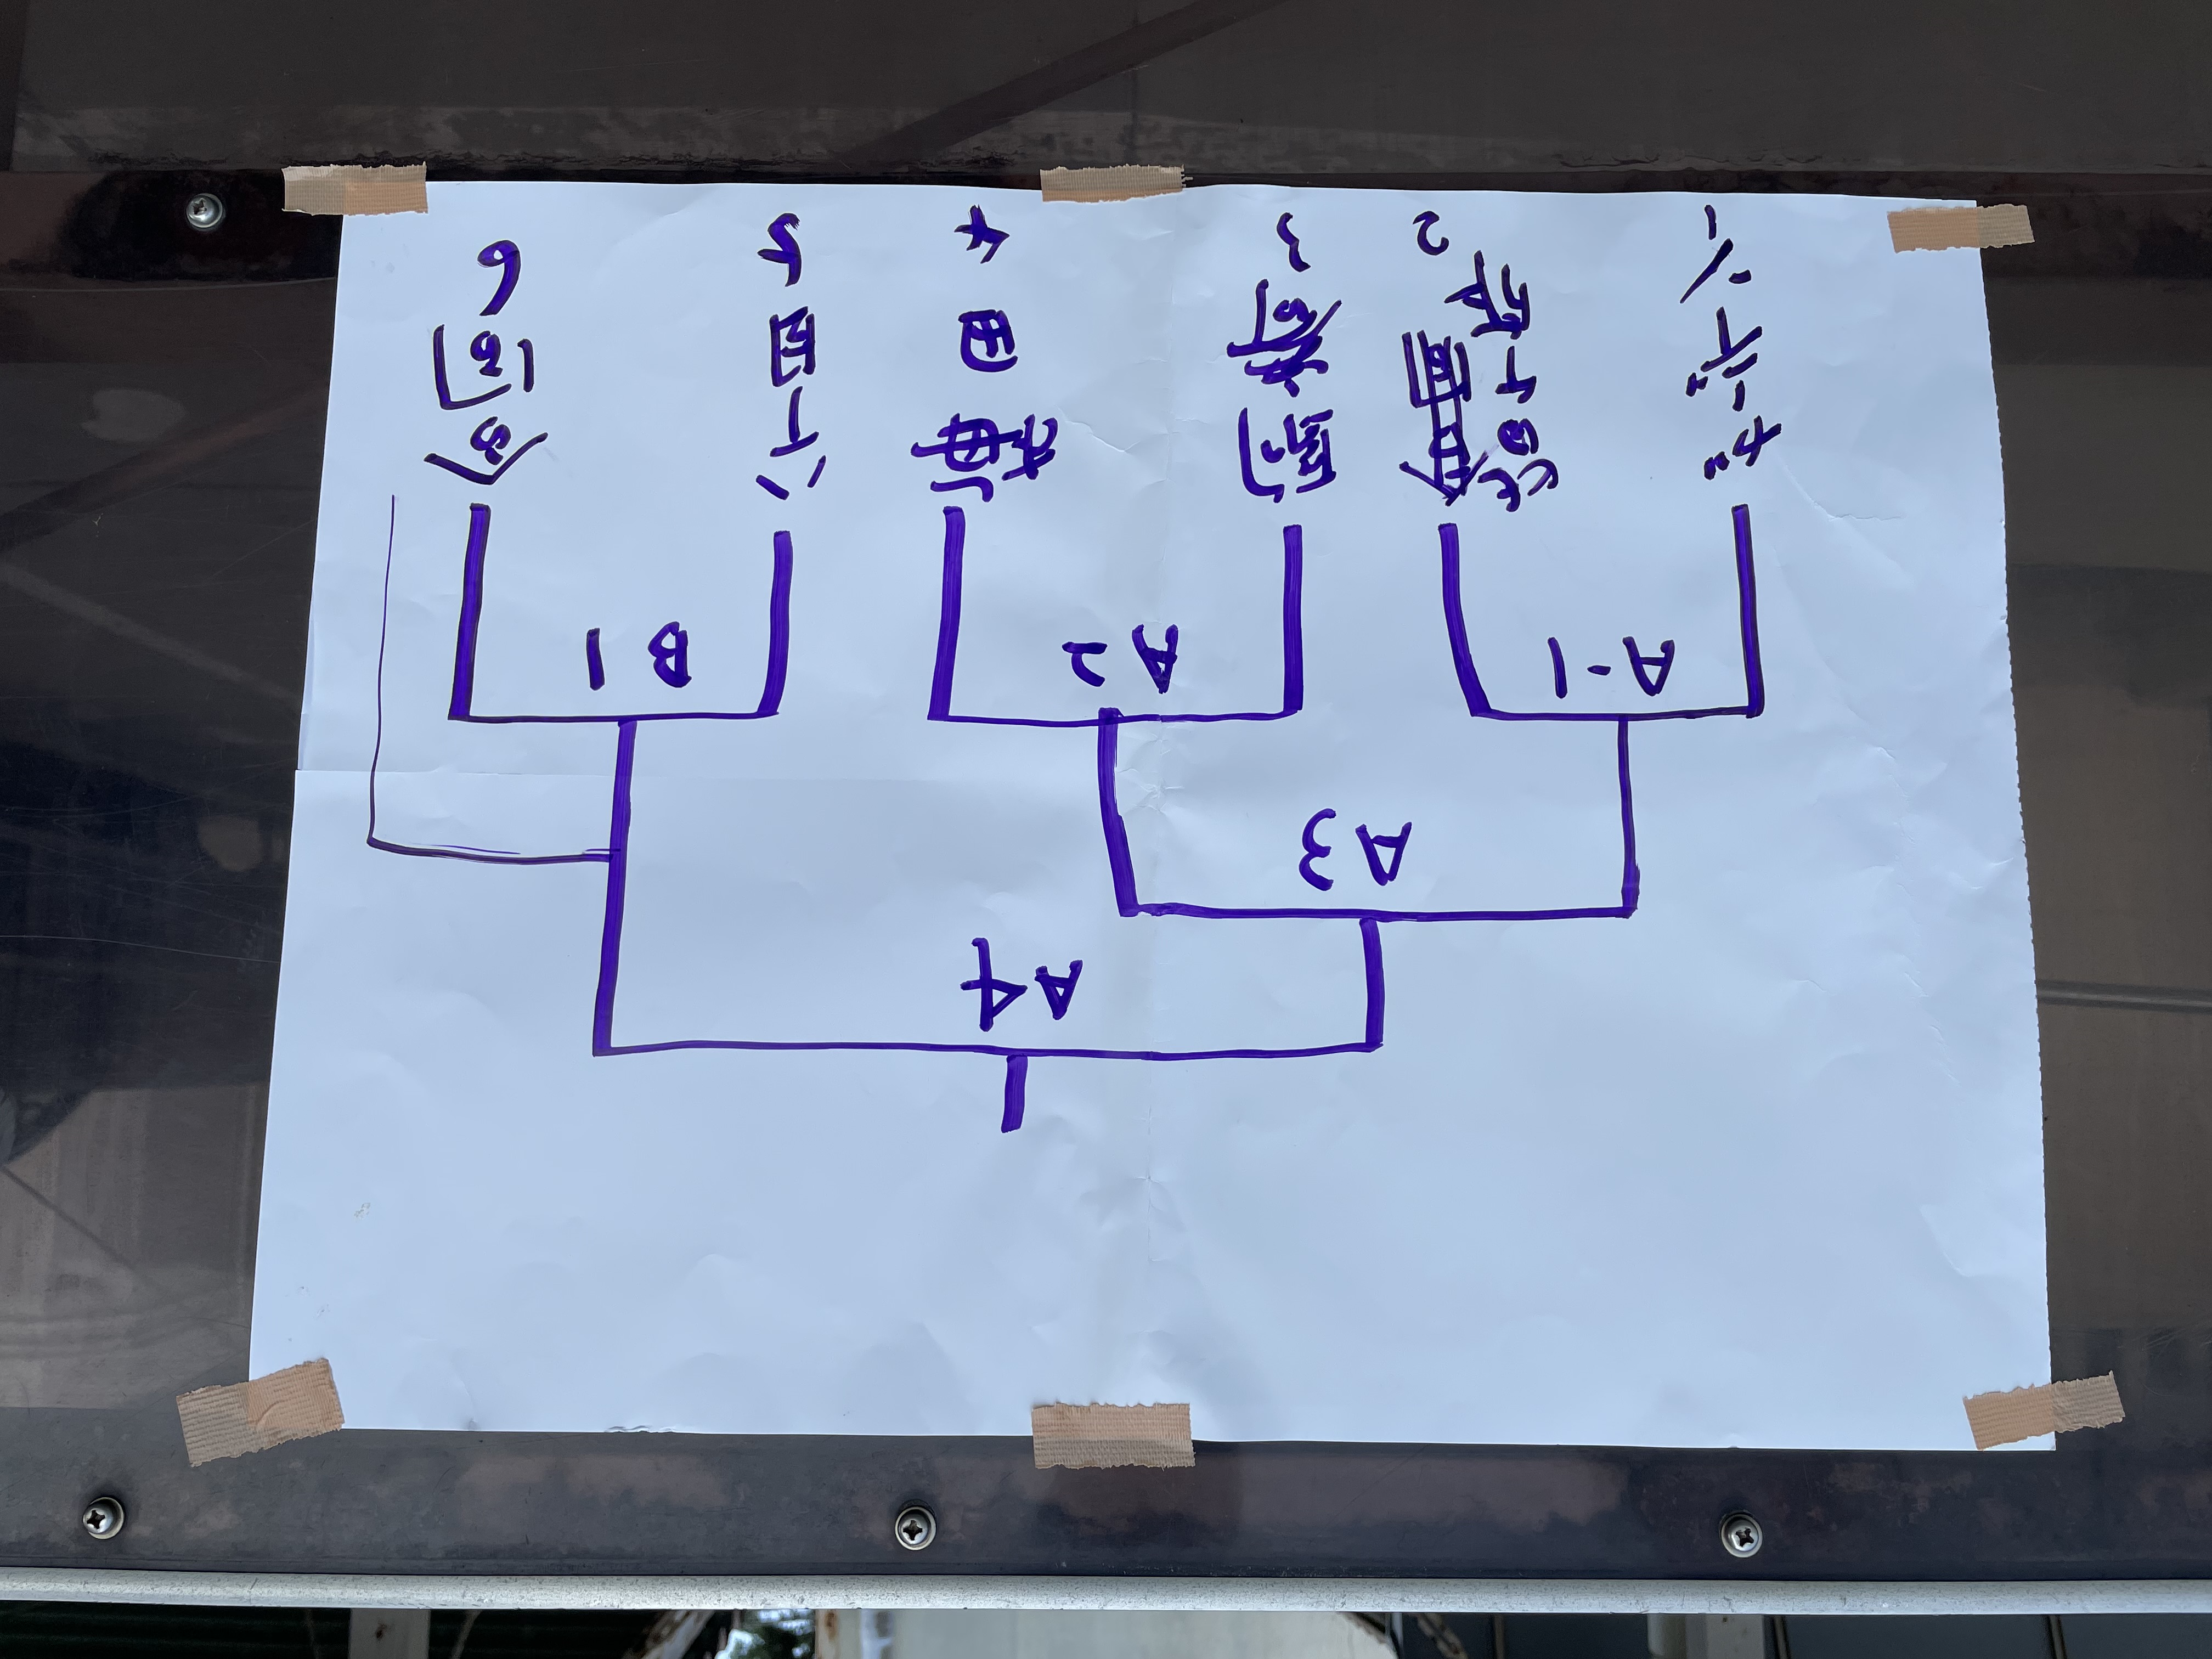 A4
A3
A-1
A2
B1
ガーデン1
皆ケ作
2
駒寄3
梅田4
八丁目5
合同6